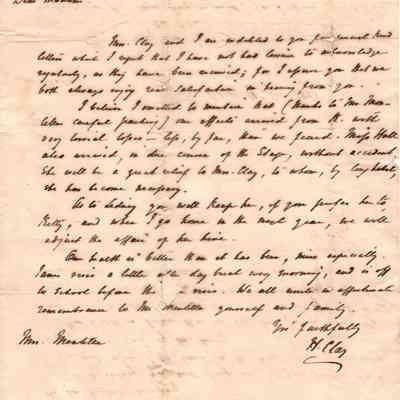 Dear Madam
Mrs. Clay and I are indebted to you for several kind
letters which I regret that I have not had leisure to acknowledge
regularly, as they have been received; for I assure you that we
both always enjoy real satisfaction in hearing from you.
I believe I omitted to mention that (thanks to Mr. Men-
telles careful packing) our effects arrived from K. with
very trivial losses — less, by far, than we feared. Miss Hall
also arrived, in due course of the Stage, without accident.
She will be a great relief to Mrs. Clay, to whom, by long habit,
she has become necessary.
As to Lading you will keep her, if you prefer her to
Kitty, and when I go home in the next year, we will
adjust the affair of her hire.
Our health is better than it has been, mine especially.
James rises a little after day break every morning, and is off
to School before the rises. We all unite in affectionate
remembrance to Mr. Mentelle yourself and family.
Yrs faithfully
H. Clay
Mrs. Mentelle